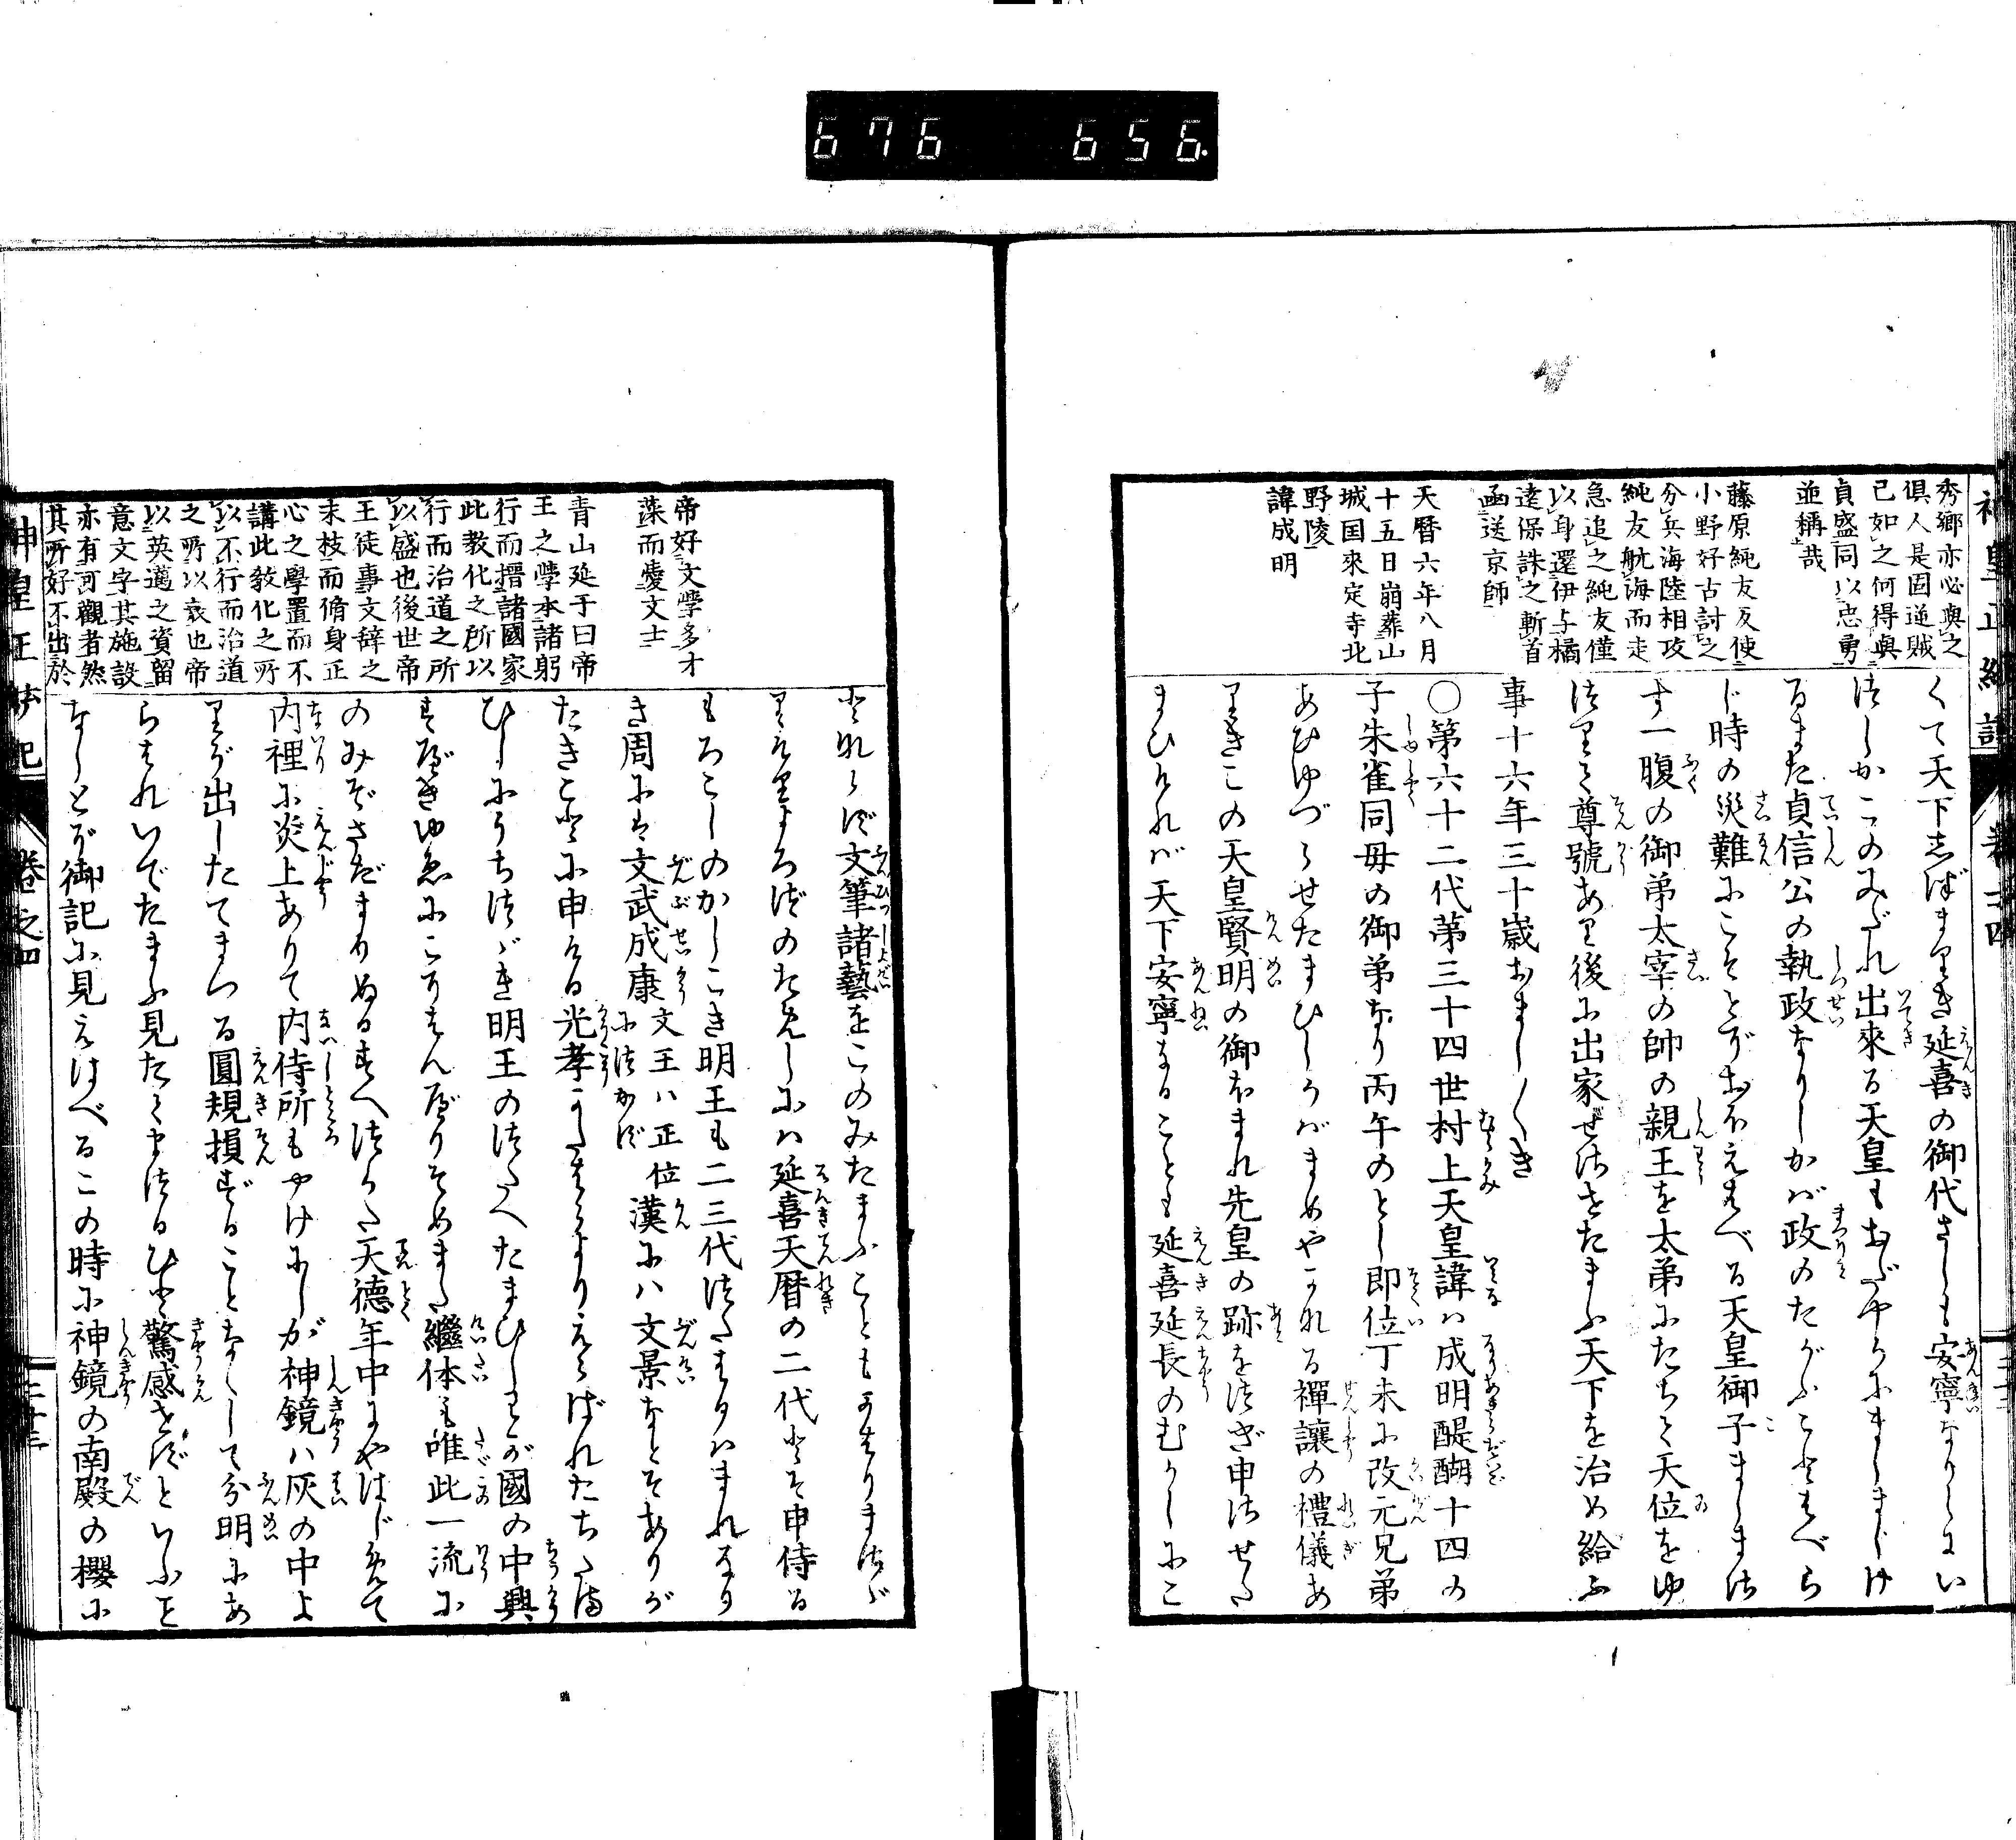 676 656
秀郷亦必與之
俱人是固逆賊
已如之何得與
貞盛同以忠勇
並稱哉
藤原純友反使
小野好古討之
分兵海陸相攻
純友航海而走
急追之純友僅
以身還伊与橘
遠保誅之斬首
函送京師
天暦六年八月
十五日崩葬山
城国來定寺北
野陵
諱成明
くて天下しばまりき延喜の御代さしも安寧なりしにい
つしかこのみだれ出來る天皇もおだやかにましましけ
るまた貞信公の執政なりしかば政のたがふことはべら
じ時の災難にこそとぞおぼえはべる天皇御子ましまさ
ず一腹の御弟太宰の帥の親王を太弟にたちて天位をゆ
づりて尊號あり後に出家せさせたまふ天下を治め給ふ
事十六年三十歳おまし〳〵き
〇第六十二代第三十四世村上天皇諱ハ成明醍醐十四の
子朱雀同母の御弟なり丙午のとし即位丁未に改元兄弟
あひゆづらせたまひしかばまめやかなる禪讓の禮儀あ
りきこの天皇賢明の御ほまれ先皇の跡をつぎ申させた
まひければ天下安寧なることも延喜延長のむかしにこ
帝好文學多才
藻而愛文士
青山延于曰帝
王之學本諸躬
行而搢諸國家
此教化之所以
行而治道之所
以盛也後世帝
王徒事文辞之
末枝而脩身正
心之學置而不
講此敎化之所
以不行而治道
之所以衰也帝
以英邁之資留
意文字其施設
亦有可觀者然
其所好不出於
となれらず文筆諸藝をこのみたまふこともかはりまさゞ
りけりよろづのためしにハ延喜天暦の二代とぞ申侍る
もろこしのかしこき明王も二三代つたはるハまれなり
き周にぞ文武成康文王ハ正位につかず漢にハ文景などそありが
たきことに申ける光孝かたはらよりえらばれたちたま
ひしにうちつゞき明王のつたへたまひしわが國の中興
すべきゆゑにこそはんべりそめまた繼体も唯此一流に
のみぞさだまりぬるすへつかた天德年中にやはじめて
内裡に炎上ありて内侍所もやけにしが神鏡ハ灰の中よ
りぞ出したてまつる圓規損ずることなくして分明にあ
らはれいでたまふ見たてまつるひと驚感せずといふこと
なしとぞ御記に見えはべるこの時に神鏡の南殿の櫻に
神皇正統記
卷之四
二十三